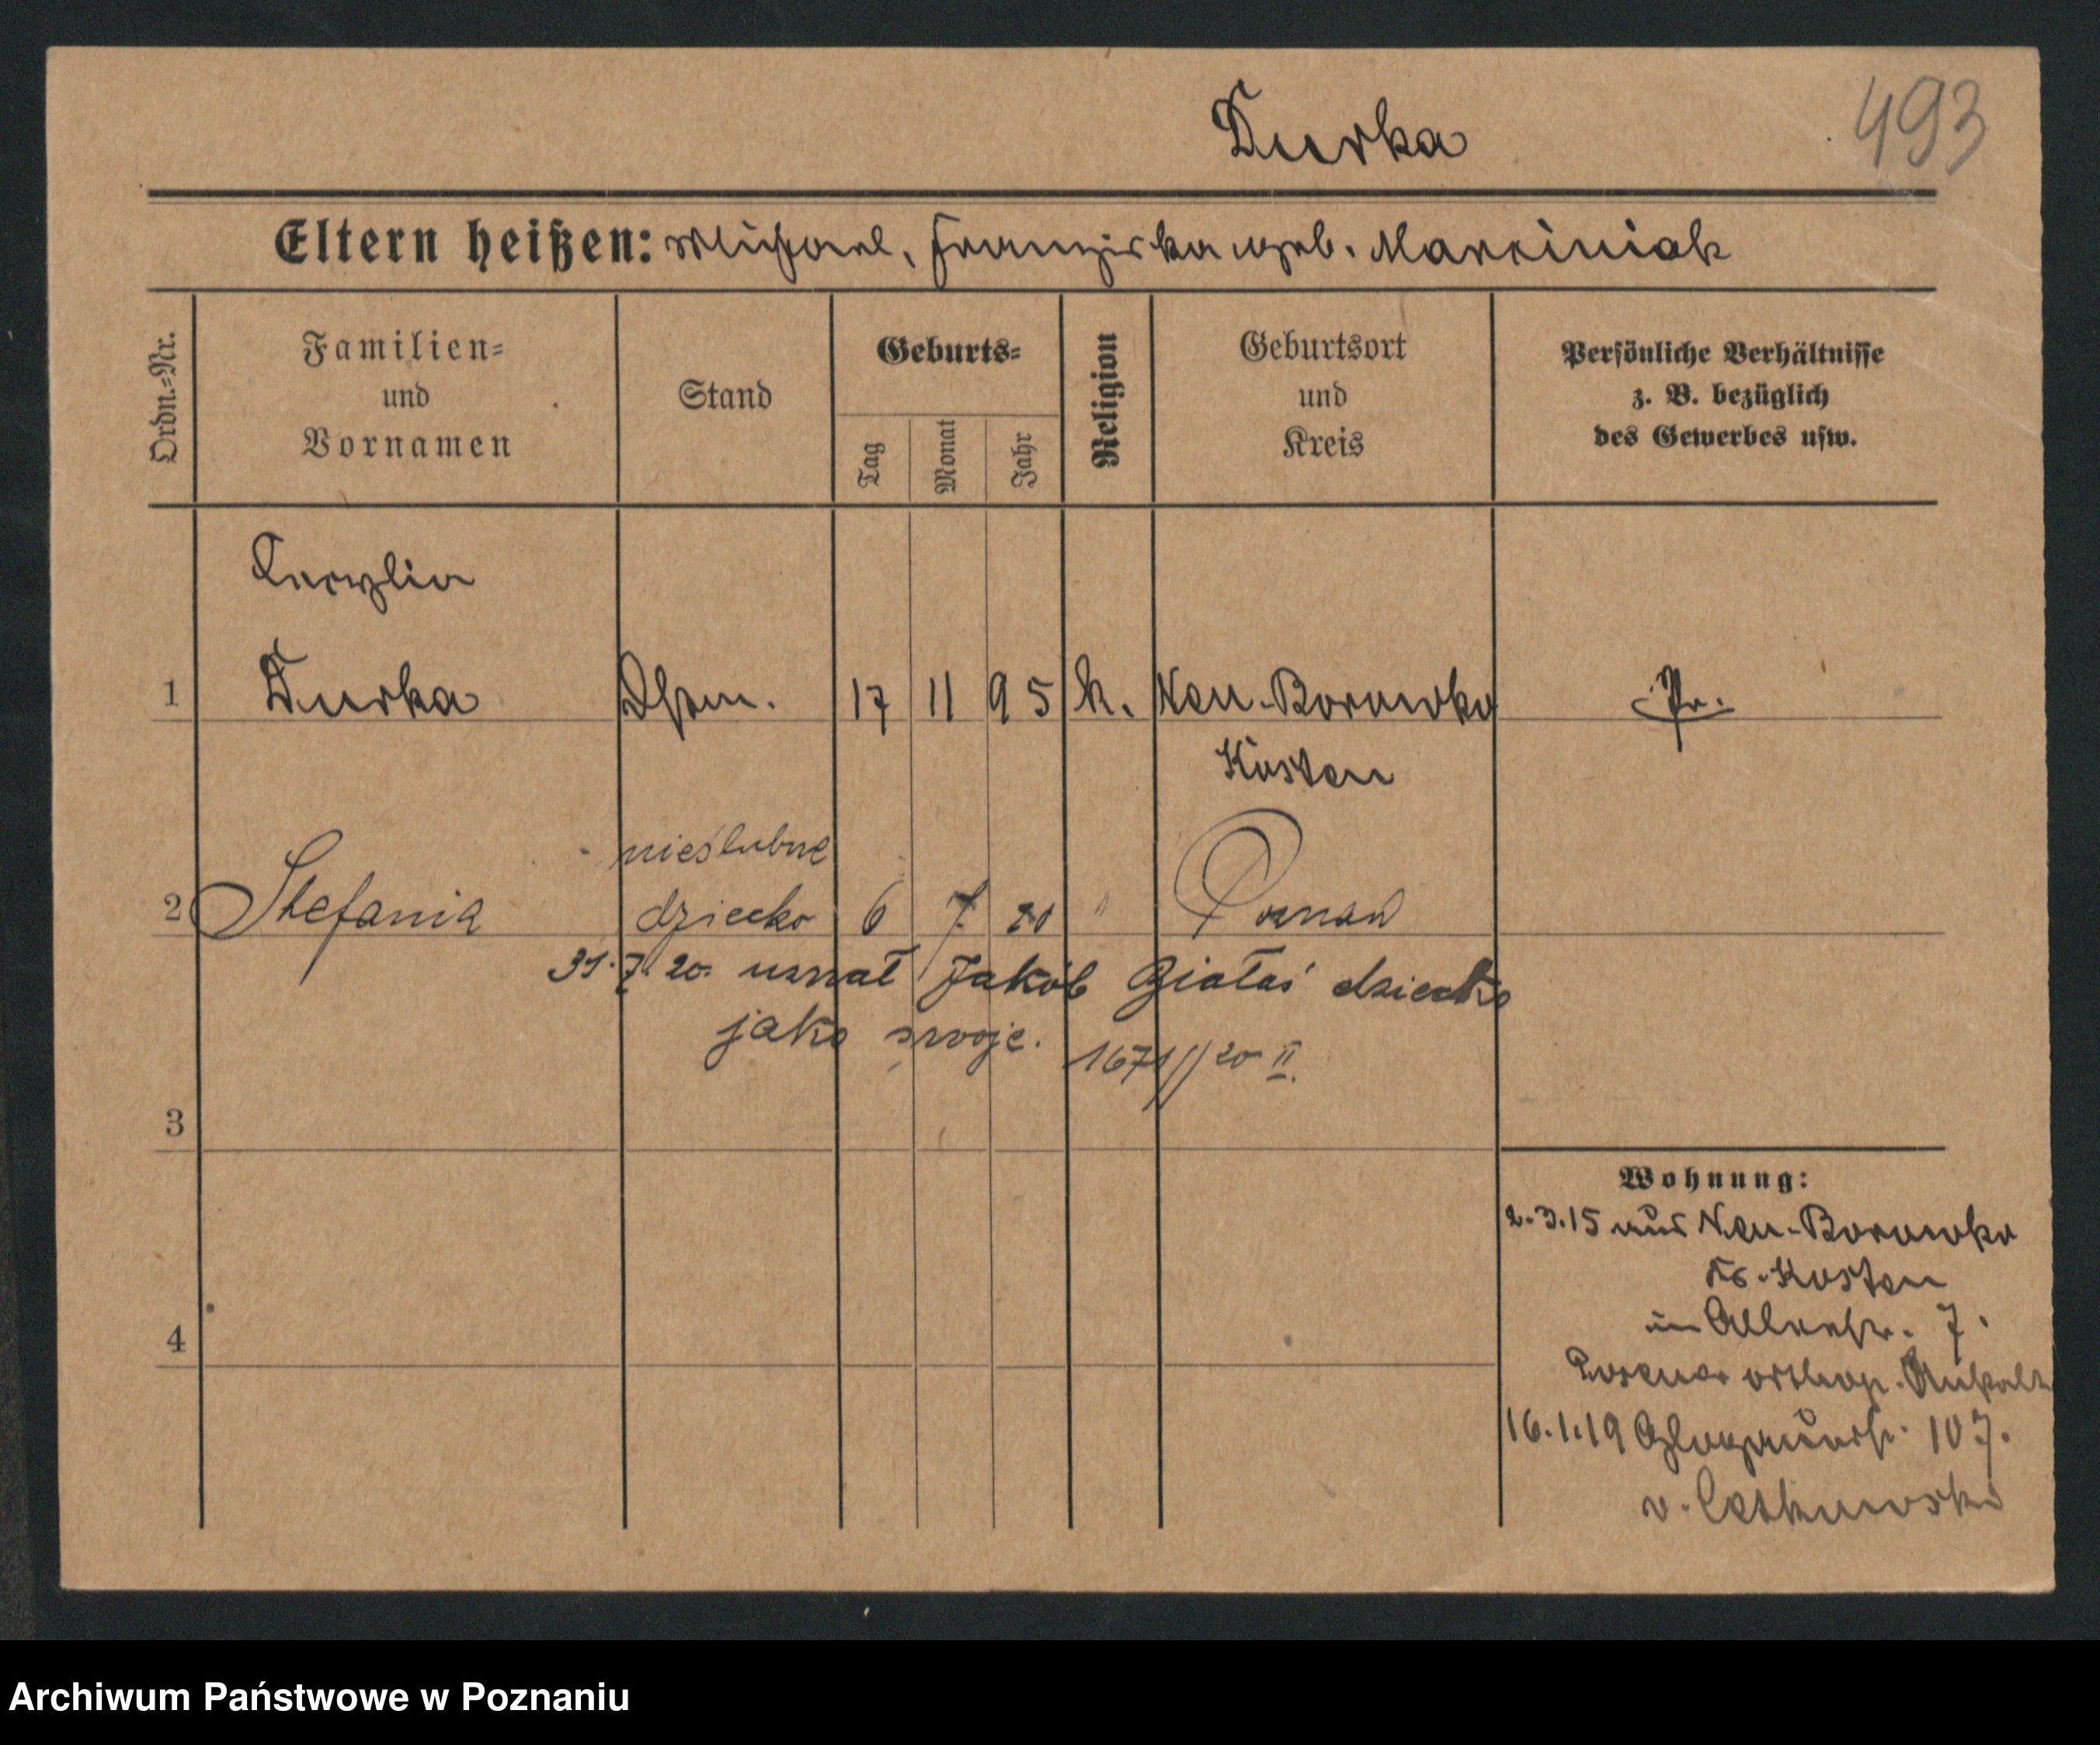 Durka
493
Eltern heißen: Michael, Franziska geb. Marciniak
Ordn.-Nr.
Familien-
und
Vornamen
Stand
Geburts-
Tag
Monat
Jahr
Religion
Geburtsort
und
Kreis
Persönliche Verhältnisse
z. B. bezüglich
des Gewerbes usw.
1
Durka
17 11 95 k. Neu-Borowko
Pr.
Kosten
2 Stefania
nieślubne
dziecko 6 7. 20 " Poznań
31.7.20. uznał Jakób Giałaś dziecko
jako swoje. 1671//20 II.
3
4
Wohnung:
2.3.15 aus Neu-Borowko
Kr. Kosten
in 7.
Posener orthop. Anstalt
16.1.19 Glogauerstr. 107.
v.
Archiwum Państwowe w Poznaniu